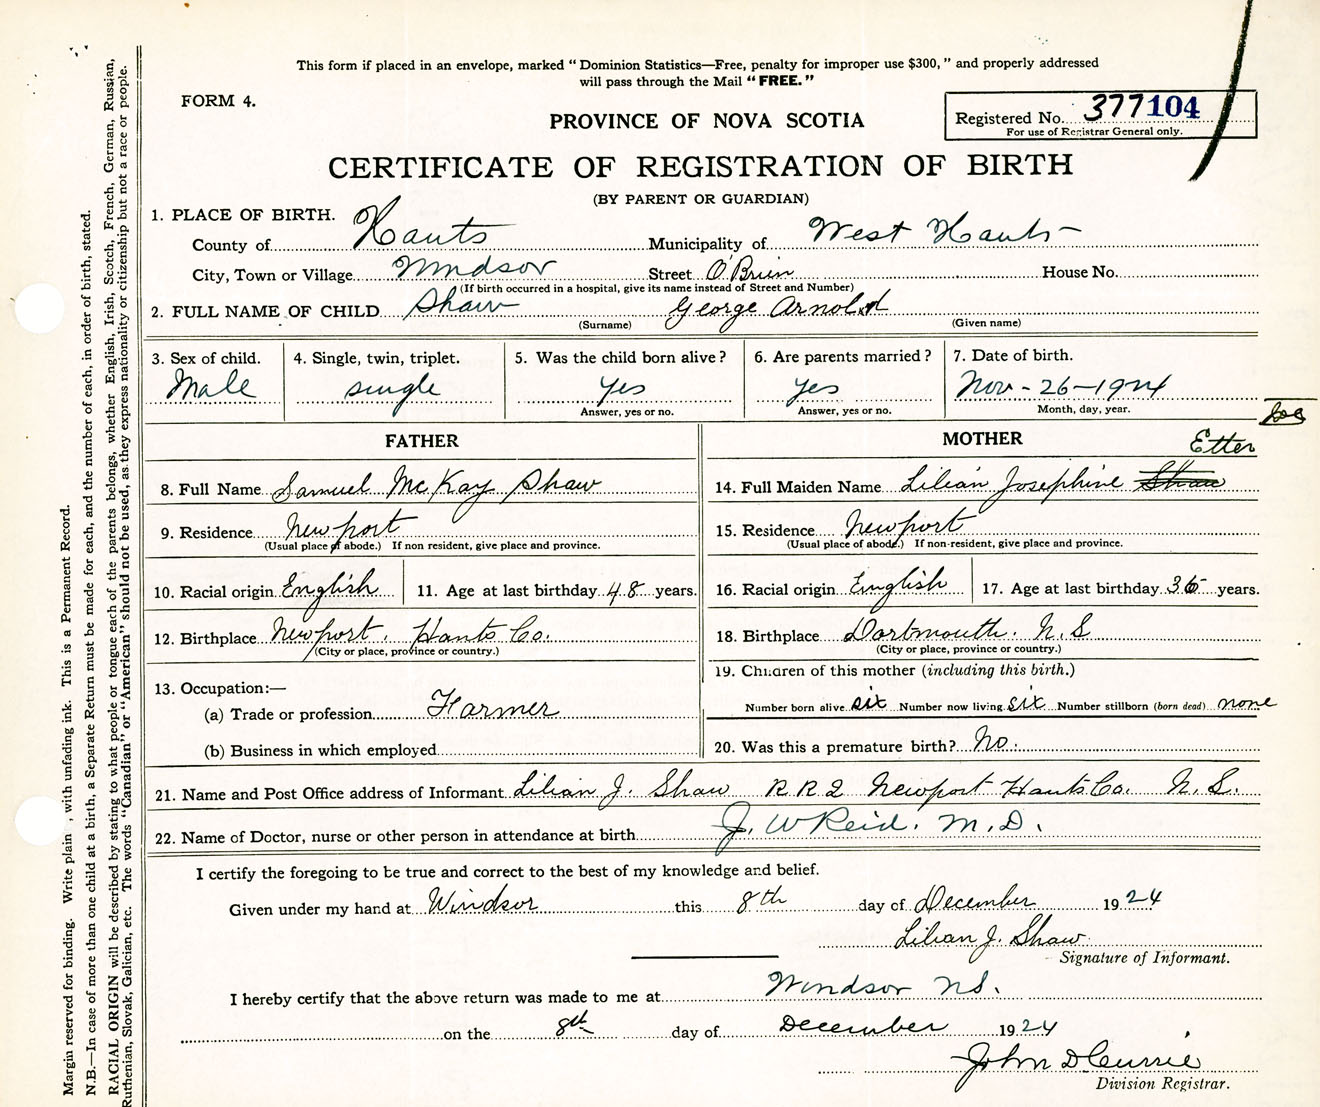 This form if placed in an envelope, marked "Dominion Statistics—Free, penalty for improper use $300," and properly addressed
will pass through the Mail "FREE."
FORM 4.
Registered No. 377104
For use of Registrar General only.
PROVINCE OF NOVA SCOTIA
CERTIFICATE OF REGISTRATION OF BIRTH
(BY PARENT OR GUARDIAN)
1. PLACE OF BIRTH.
County of Hants Municipality of West Hants
City, Town or Village Windsor Street O'Brien House No.
(If birth occurred in a hospital, give its name instead of Street and Number)
2. FULL NAME OF CHILD Shaw George Arnold
(Surname) (Given name)
3. Sex of child. 4. Single, twin, triplet. 5. Was the child born alive? 6. Are parents married? 7. Date of birth.
Male single Yes Yes Nov - 26 - 1924
Answer, yes or no. Answer, yes or no. Month, day, year.
FATHER MOTHER
Etter
8. Full Name Samuel McKay Shaw 14. Full Maiden Name Lilian Josephine Shaw
9. Residence Newport 15. Residence Newport
(Usual place of abode.) If non resident, give place and province. (Usual place of abode.) If non-resident, give place and province.
10. Racial origin English 11. Age at last birthday 48 years. 16. Racial origin English 17. Age at last birthday 36 years.
12. Birthplace Newport, Hants Co. 18. Birthplace Dartmouth. N.S
(City or place, province or country.) (City or place, province or country.)
19. Children of this mother (including this birth.)
13. Occupation:—
(a) Trade or profession Farmer Number born alive six Number now living six Number stillborn (born dead) none
(b) Business in which employed 20. Was this a premature birth? No.
21. Name and Post Office address of Informant Lilian J. Shaw R R 2 Newport Hants Co. N.S.
22. Name of Doctor, nurse or other person in attendance at birth J. W Reid. M.D.
I certify the foregoing to be true and correct to the best of my knowledge and belief.
Given under my hand at Windsor this 8th day of December 1924
Lilian J. Shaw
Signature of Informant.
I hereby certify that the above return was made to me at Windsor NS.
on the 8th day of December 1924
John D Currie
Division Registrar.
Margin reserved for binding. Write plain, with unfading ink. This is a Permanent Record.
N.B.—In case of more than one child at a birth, a Separate Return must be made for each, and the number of each, in order of birth, stated.
RACIAL ORIGIN will be described by stating to what people or tongue each of the parents belongs, whether English, Irish, Scotch, French, German, Russian,
Ruthenian, Slovak, Galician, etc. The words "Canadian" or "American" should not be used, as they express nationality or citizenship but not a race or people.